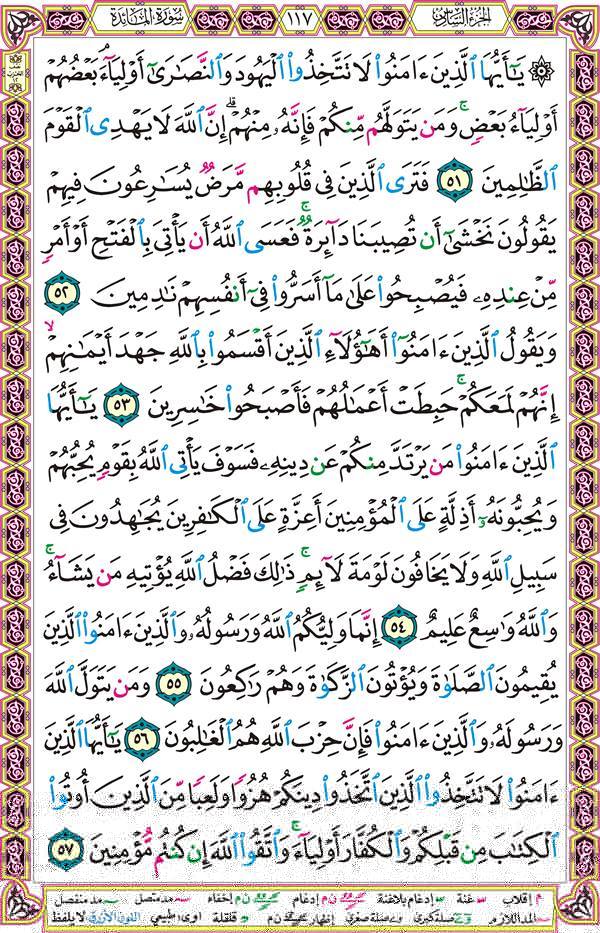 الجزء السادس
١١٧
سورة المائدة
۞ يَٰٓأَيُّهَا ٱلَّذِينَ ءَامَنُوا۟ لَا تَتَّخِذُوا۟ ٱلْيَهُودَ وَٱلنَّصَٰرَىٰٓ أَوْلِيَآءَۘ بَعْضُهُمْ
أَوْلِيَآءُ بَعْضٍۚ وَمَن يَتَوَلَّهُم مِّنكُمْ فَإِنَّهُۥ مِنْهُمْۗ إِنَّ ٱللَّهَ لَا يَهْدِى ٱلْقَوْمَ
ٱلظَّٰلِمِينَ ٥١ فَتَرَى ٱلَّذِينَ فِى قُلُوبِهِم مَّرَضٌ يُسَٰرِعُونَ فِيهِمْ
يَقُولُونَ نَخْشَىٰٓ أَن تُصِيبَنَا دَآئِرَةٌۚ فَعَسَى ٱللَّهُ أَن يَأْتِىَ بِٱلْفَتْحِ أَوْ أَمْرٍ
مِّنْ عِندِهِۦ فَيُصْبِحُوا۟ عَلَىٰ مَآ أَسَرُّوا۟ فِىٓ أَنفُسِهِمْ نَٰدِمِينَ ٥٢
وَيَقُولُ ٱلَّذِينَ ءَامَنُوٓا۟ أَهَٰٓؤُلَآءِ ٱلَّذِينَ أَقْسَمُوا۟ بِٱللَّهِ جَهْدَ أَيْمَٰنِهِمْۙ
إِنَّهُمْ لَمَعَكُمْۚ حَبِطَتْ أَعْمَٰلُهُمْ فَأَصْبَحُوا۟ خَٰسِرِينَ ٥٣ يَٰٓأَيُّهَا
ٱلَّذِينَ ءَامَنُوا۟ مَن يَرْتَدَّ مِنكُمْ عَن دِينِهِۦ فَسَوْفَ يَأْتِى ٱللَّهُ بِقَوْمٍ يُحِبُّهُمْ
وَيُحِبُّونَهُۥٓ أَذِلَّةٍ عَلَى ٱلْمُؤْمِنِينَ أَعِزَّةٍ عَلَى ٱلْكَٰفِرِينَ يُجَٰهِدُونَ فِى
سَبِيلِ ٱللَّهِ وَلَا يَخَافُونَ لَوْمَةَ لَآئِمٍۚ ذَٰلِكَ فَضْلُ ٱللَّهِ يُؤْتِيهِ مَن يَشَآءُۚ
وَٱللَّهُ وَٰسِعٌ عَلِيمٌ ٥٤ إِنَّمَا وَلِيُّكُمُ ٱللَّهُ وَرَسُولُهُۥ وَٱلَّذِينَ ءَامَنُوا۟ ٱلَّذِينَ
يُقِيمُونَ ٱلصَّلَوٰةَ وَيُؤْتُونَ ٱلزَّكَوٰةَ وَهُمْ رَٰكِعُونَ ٥٥ وَمَن يَتَوَلَّ ٱللَّهَ
وَرَسُولَهُۥ وَٱلَّذِينَ ءَامَنُوا۟ فَإِنَّ حِزْبَ ٱللَّهِ هُمُ ٱلْغَٰلِبُونَ ٥٦ يَٰٓأَيُّهَا ٱلَّذِينَ
ءَامَنُوا۟ لَا تَتَّخِذُوا۟ ٱلَّذِينَ ٱتَّخَذُوا۟ دِينَكُمْ هُزُوًا وَلَعِبًا مِّنَ ٱلَّذِينَ أُوتُوا۟
ٱلْكِتَٰبَ مِن قَبْلِكُمْ وَٱلْكُفَّارَ أَوْلِيَآءَۚ وَٱتَّقُوا۟ ٱللَّهَ إِن كُنتُم مُّؤْمِنِينَ ٥٧
إقلاب غنة إدغام بلاغنة إدغام إخفاء مد متصل مد منفصل
المد اللازم صلة كبرى صلة صغرى إظهار قلقلة مد طبيعي اللون الأزرق لا يلفظ